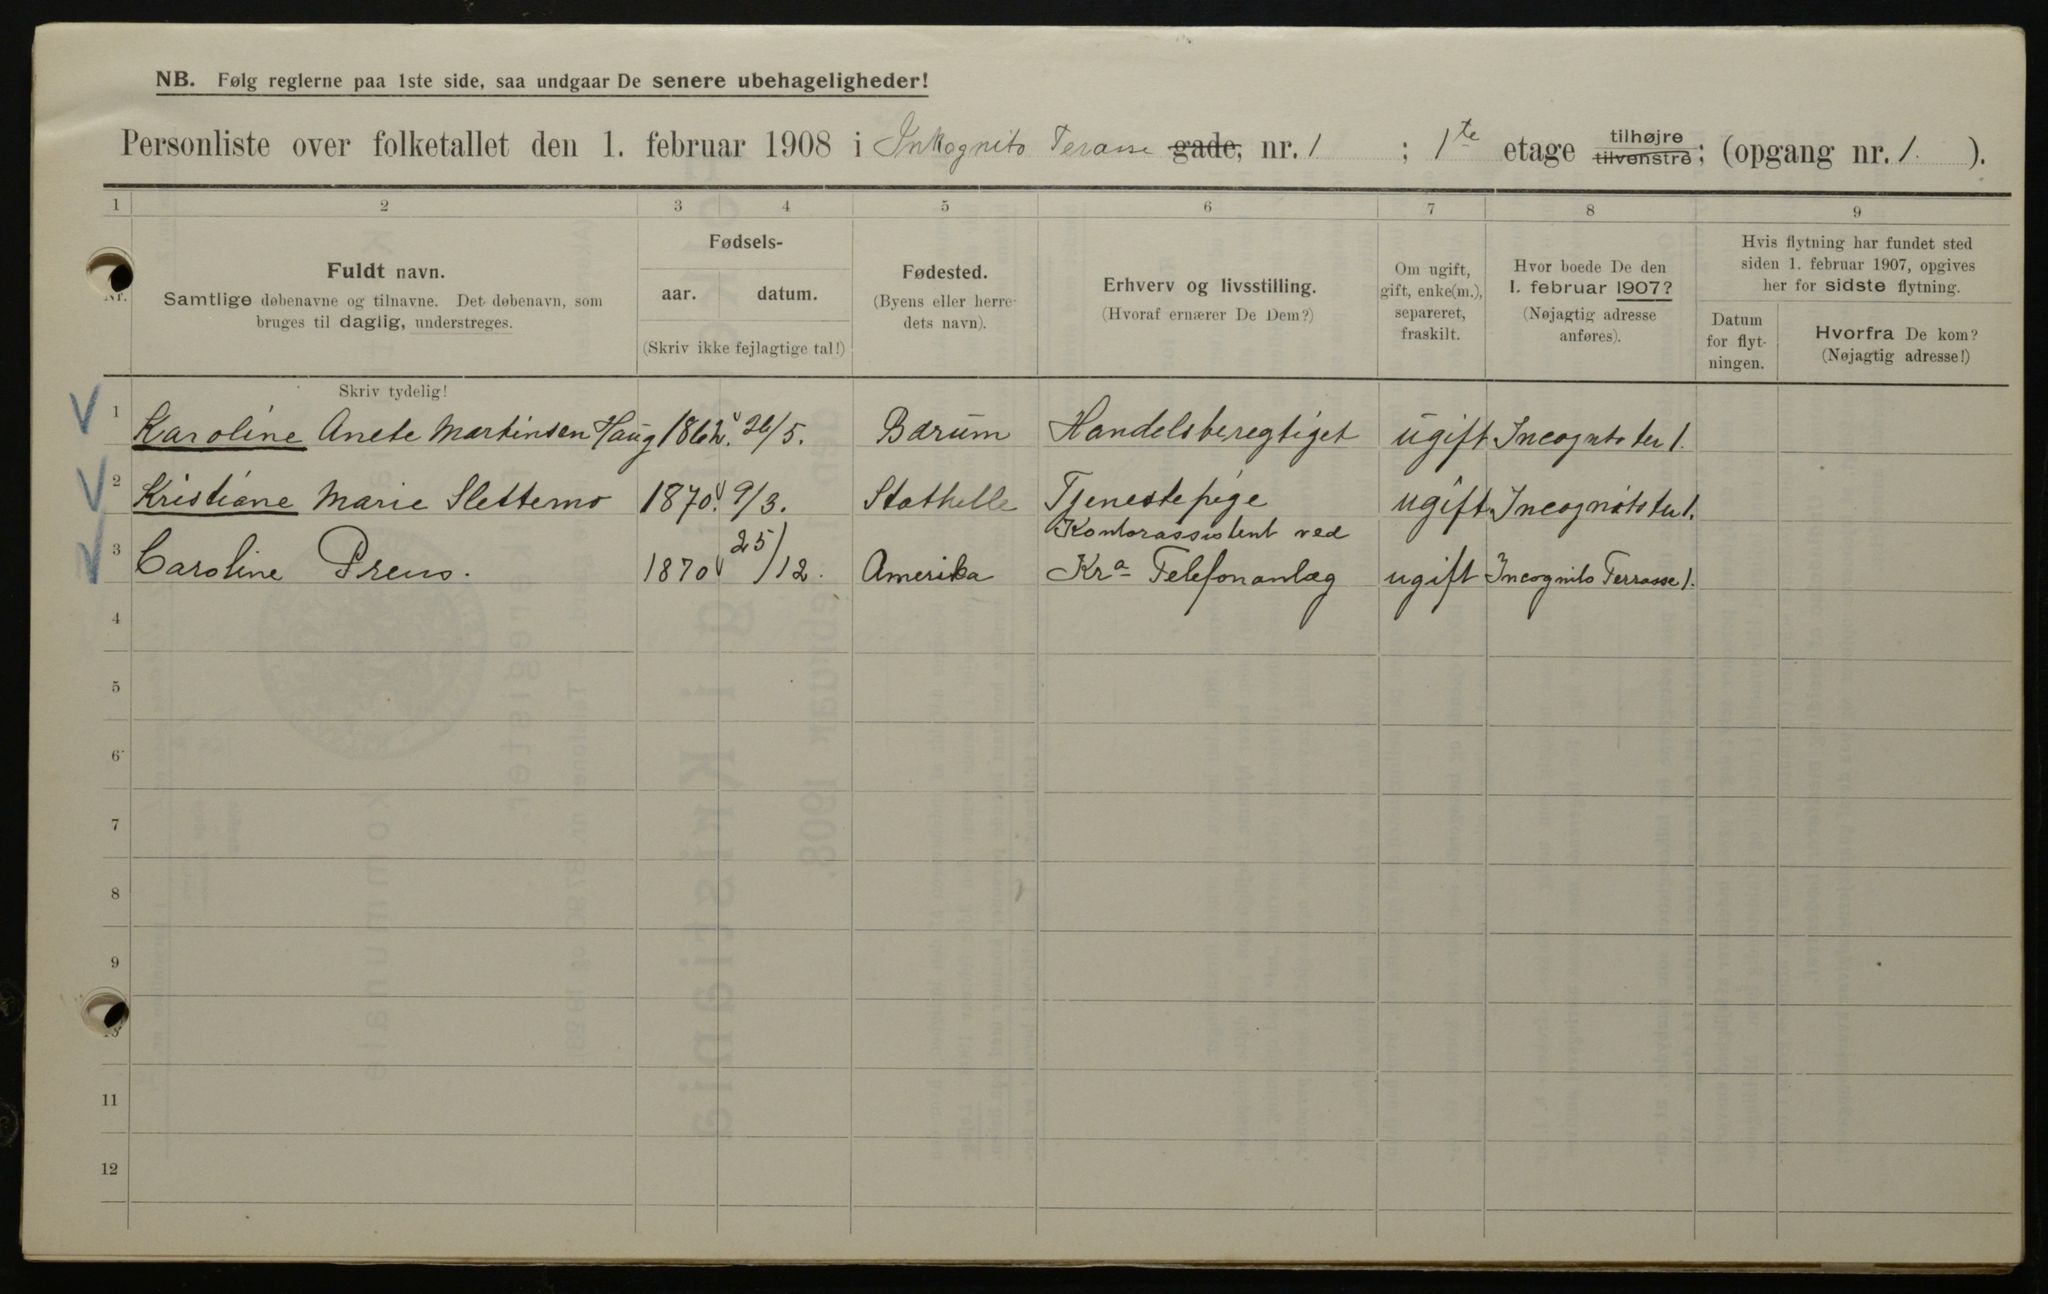 NB. Følg reglerne paa 1ste side, saa undgaar De senere ubehageligheder!
Personliste over folketallet den 1. februar 1908 i Inkognito Terasse gade, nr. 1 ; 1te etage tilhøjre tilvenstre; (opgang nr. 1. ).
1 2 3 4 5 6 7 8 9
Nr.
Fuldt navn.
Samtlige døbenavne og tilnavne. Det døbenavn, som
bruges til daglig, understreges.
Skriv tydelig!
Fødsels-
aar. datum.
(Skriv ikke fejlagtige tal!)
Fødested.
(Byens eller herre-
dets navn).
Erhverv og livsstilling.
(Hvoraf ernærer De Dem?)
Om ugift,
gift, enke(m.),
separeret,
fraskilt.
Hvor boede De den
1. februar 1907?
(Nøjagtig adresse
anføres).
Hvis flytning har fundet sted
siden 1. februar 1907, opgives
her for sidste flytning.
Datum
for flyt-
ningen.
Hvorfra De kom?
(Nøjagtig adresse!)
1 Karoline Anete Martinsen Haug 1862. 26/5. Bærum Handelsberegtiget ugift Incognito ter 1.
2 Kristiane Marie Slettemo 1870. 9/3. Stathelle Tjenestepige ugift Incognito ter 1.
3 Caroline Preus. 1870 25/12. Amerika Kontorassistent ved
Kra Telefonanlæg ugift Incognito Terrasse 1.
4
5
6
7
8
9
10
11
12